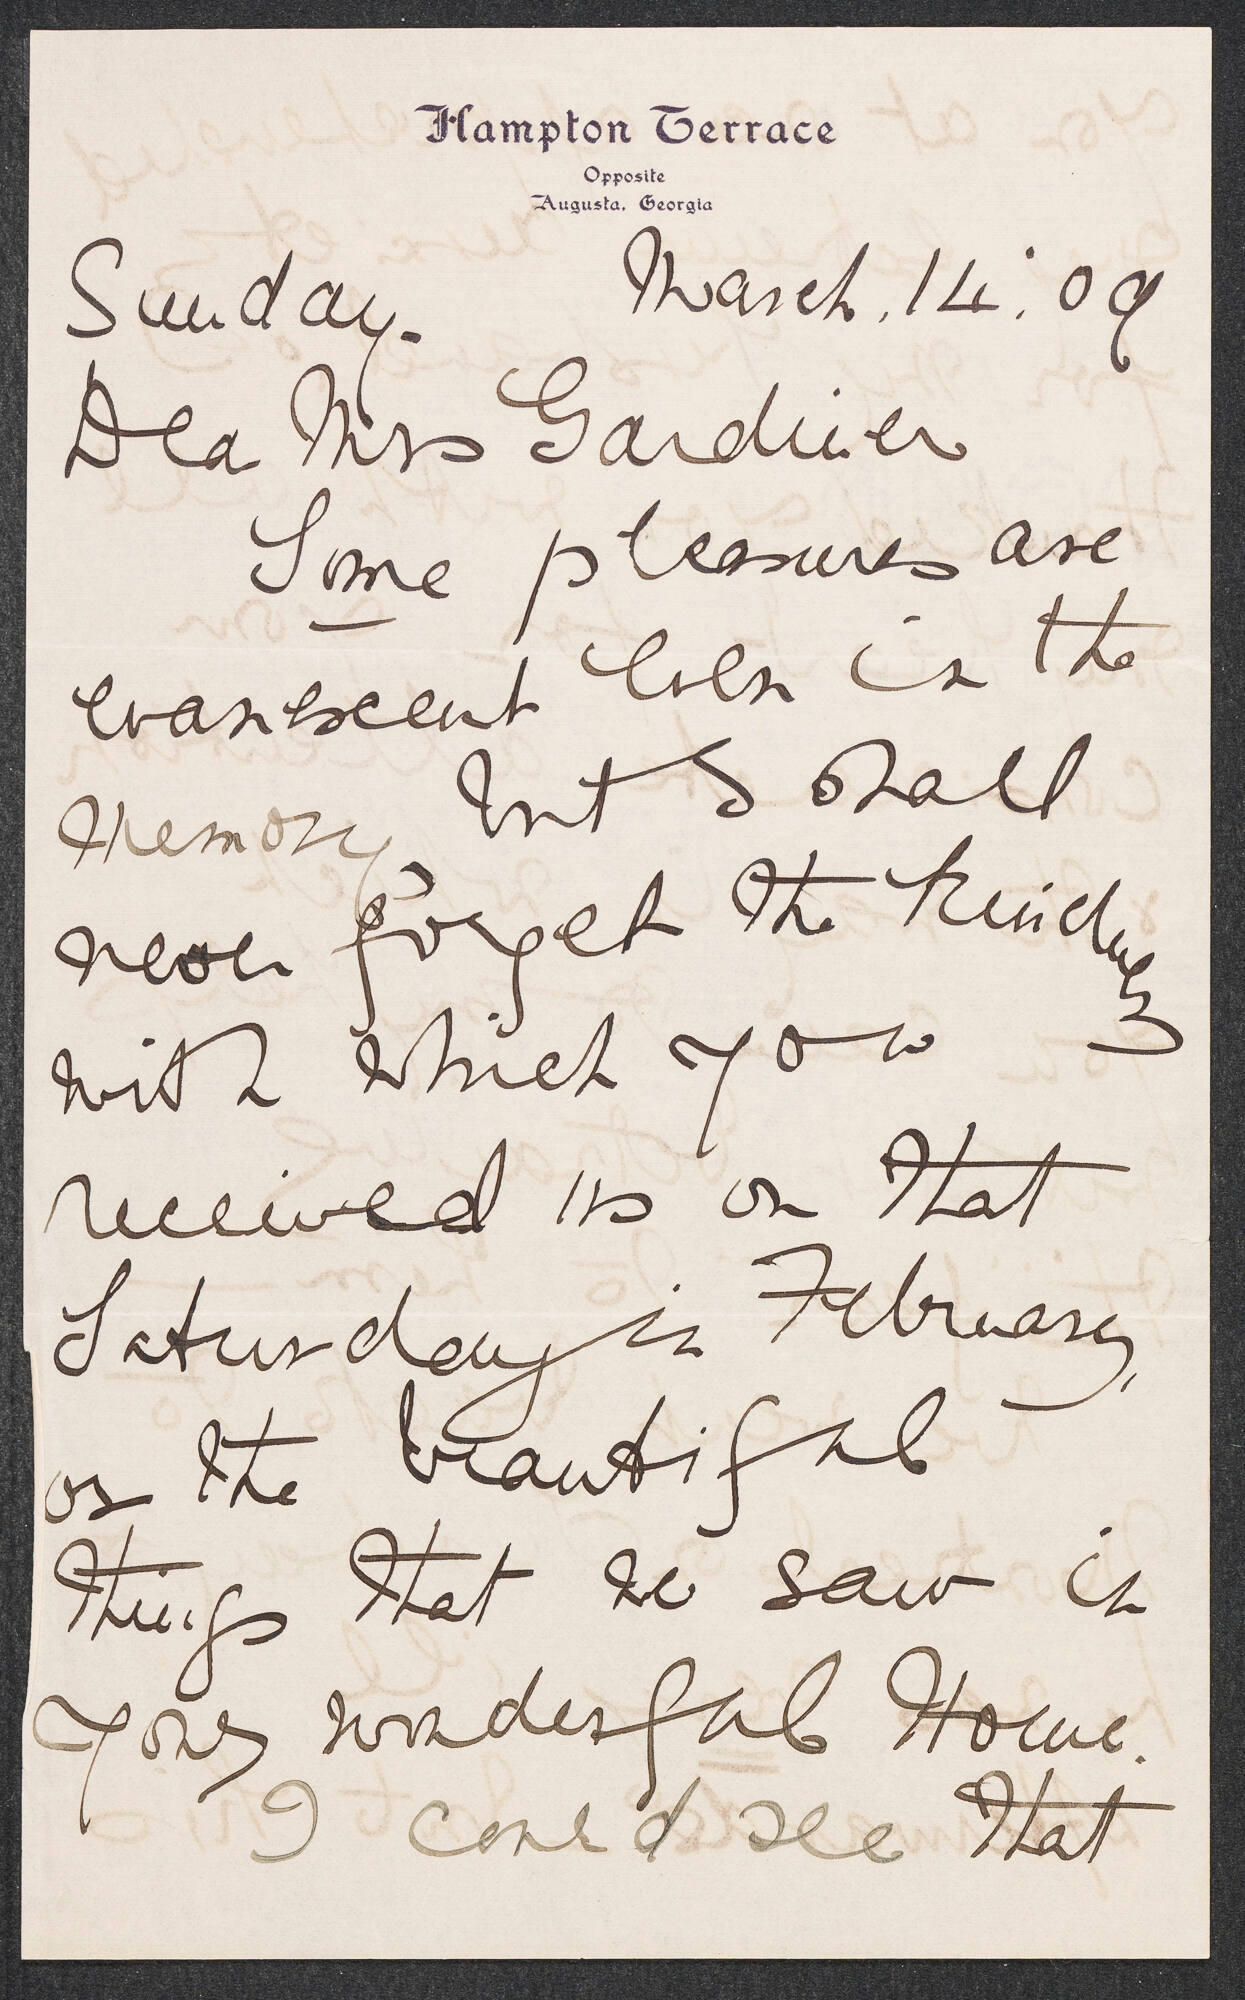 Hampton Terrace
Opposite
Augusta, Georgia
Sunday. March. 14. 09
Dea Mrs Gardiner
Some pleasures are
evanescent even in the
memory but I shall
never forget the kindness
with which you
received us on that
Saturday in February,
or the beautiful
things that we saw in
your wonderful Home.
I could see that